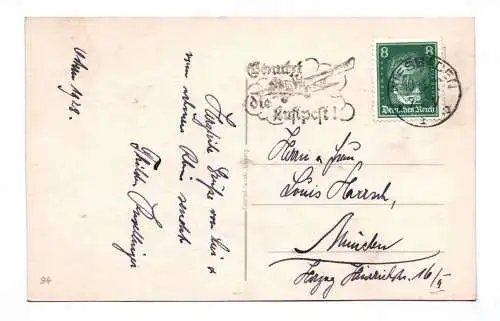 Ostern 1928.
Herzliche Grüße von hier &
vom schönen Rhein sendet
Benutzt
die
Luftpost!
8 8
Deutsches Reich
WIESBADEN
Herrn u. Frau
Louis Harrsch,
München
Herzog Heinrichstr. 16/
94